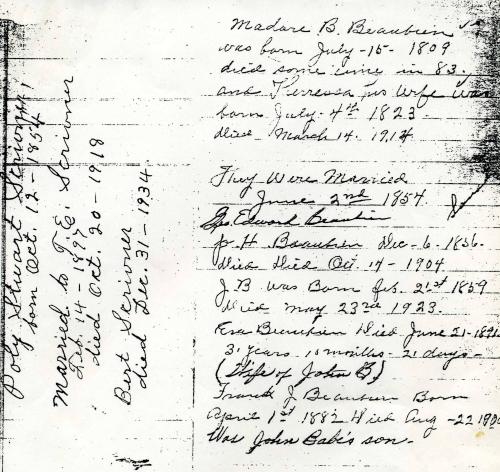 Madore B. Beaubien
was born July-15-1809
died some time in 83.
and Terressa his wife was
born July. 4th 1823.
died March 14. 1914
They Were Married
June 2nd 1854.
Edward Beaubien
J. H. Beaubien Dec-6-1856.
Died Oct. 14-1904
J. B. was Born 21st 1859
Died May 23rd 1923.
Beaubien Died June 21-1891
31 years 10 months-21 days-
(Wife of John B)
Frank J Beaubien Born
April 1st 1882 Died Aug-22
Was John Babi's son-
Poly Stuart Scrivner
born Oct. 12-1854
Married to T. E. Scrivner
Feb. 14-1897
died Oct. 20-1918
Bert Scrivner
died Dec. 31-1934